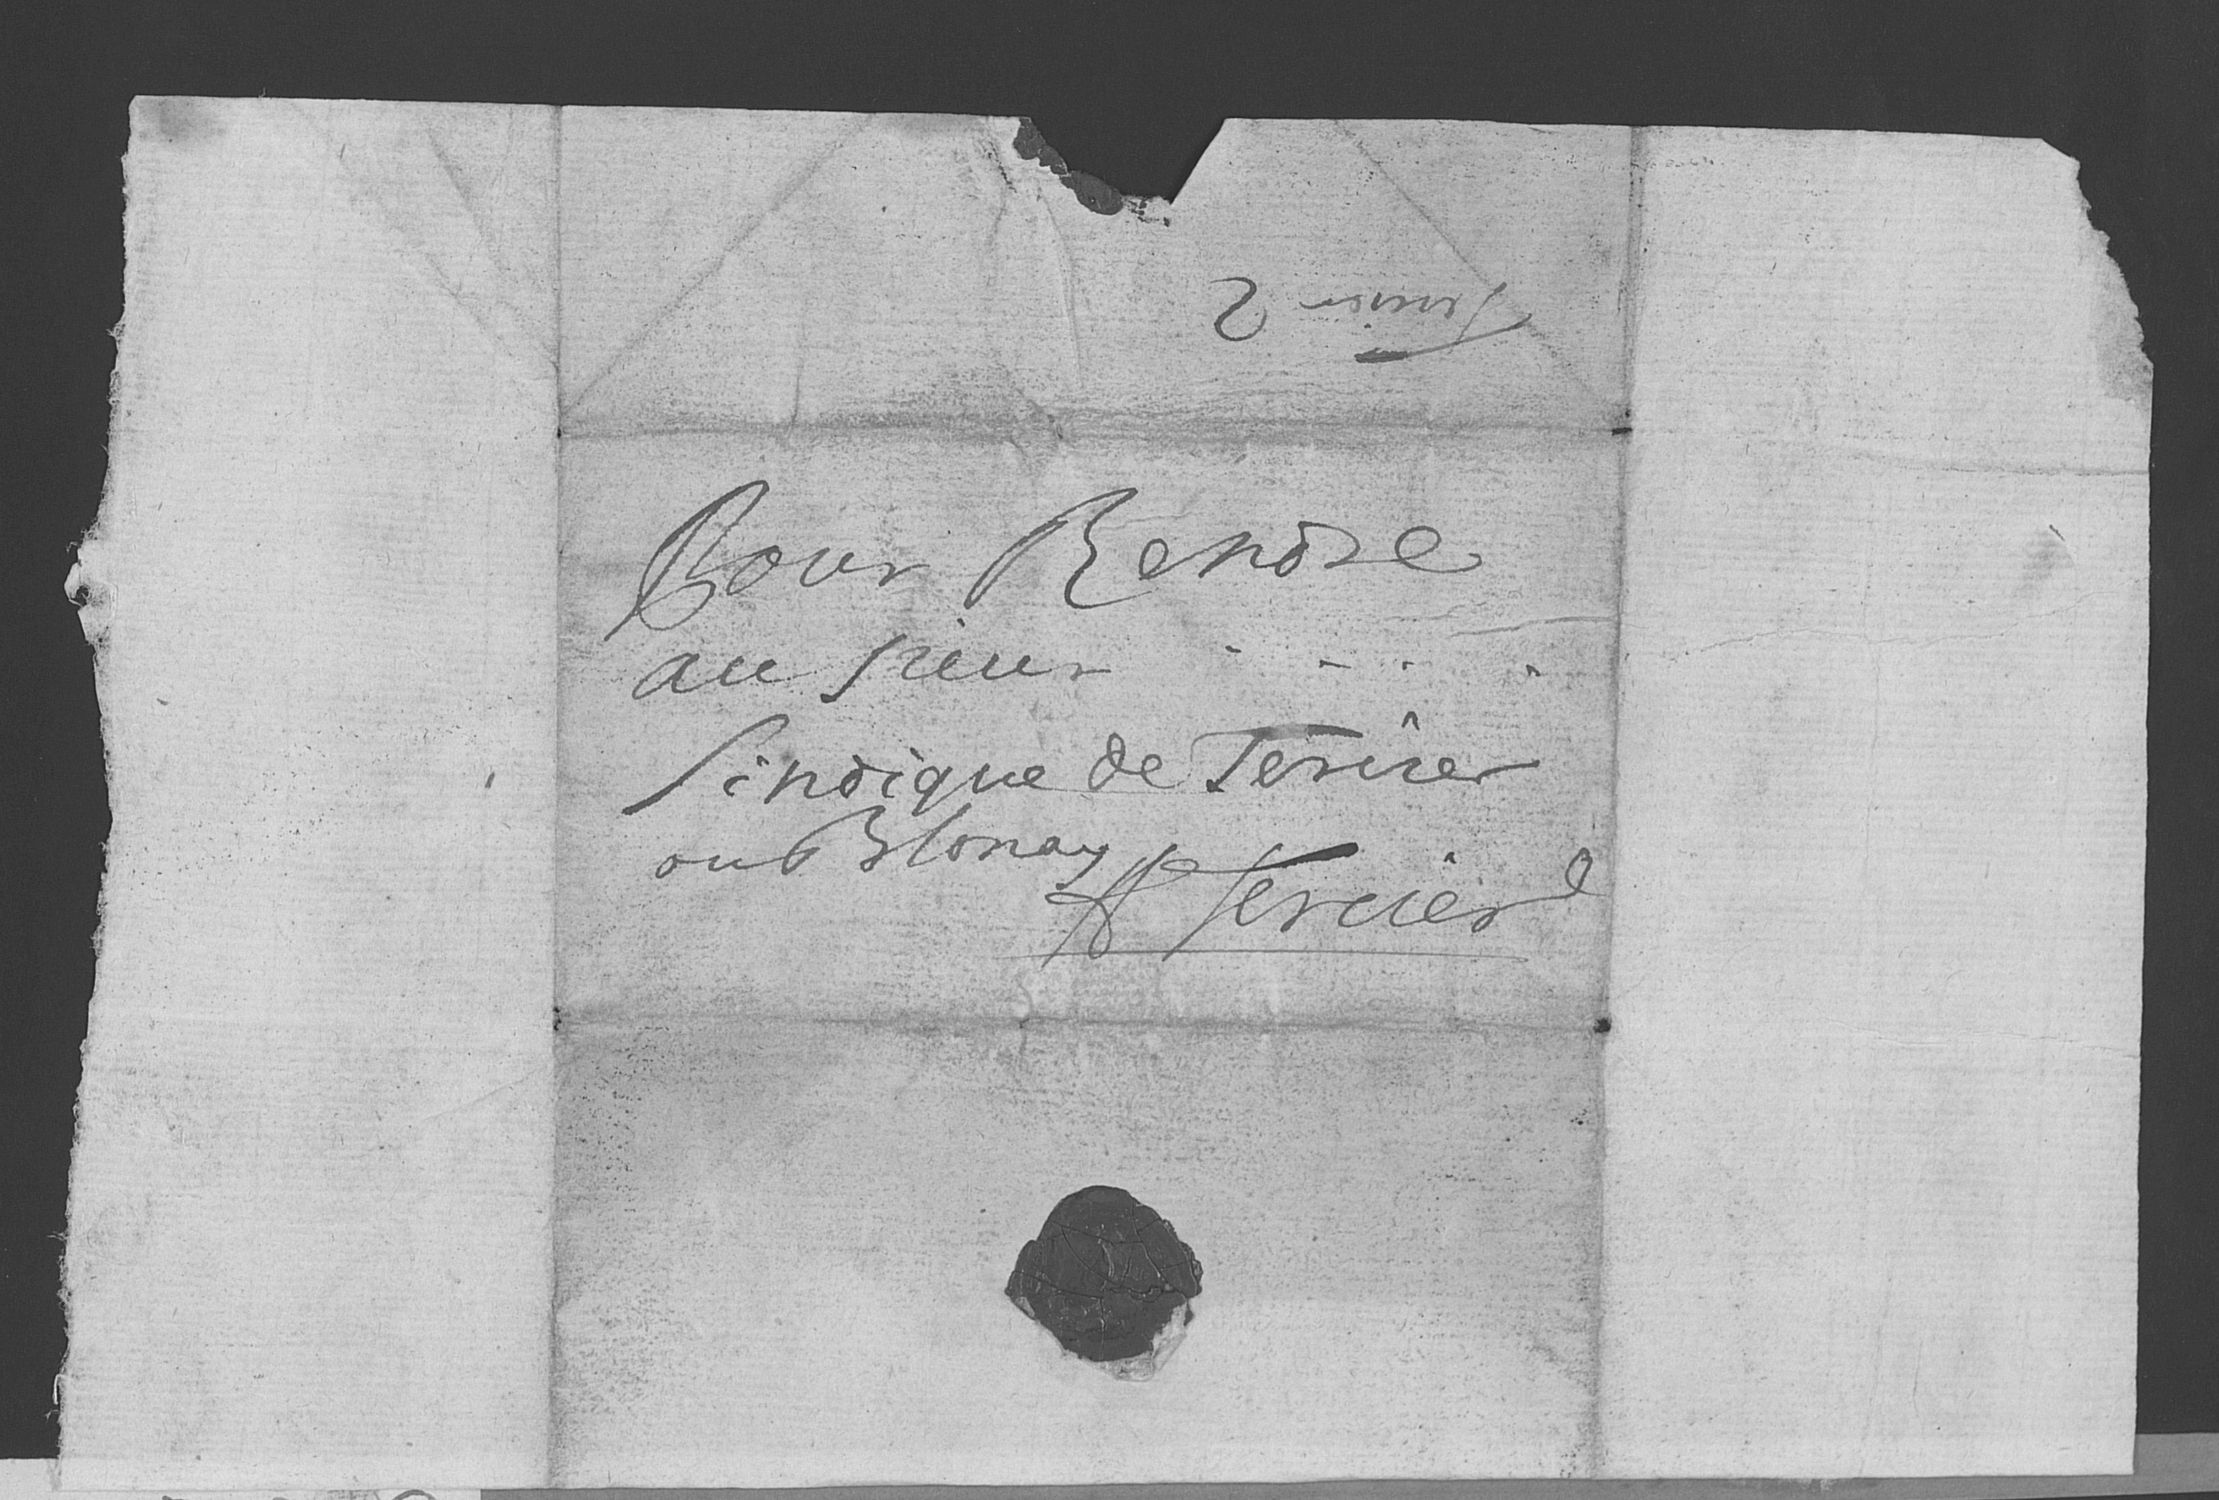 Tercier 2
Pour Rendre
au sieur - - . -
Sindique de Tercier
ou Blonay
A Tercier